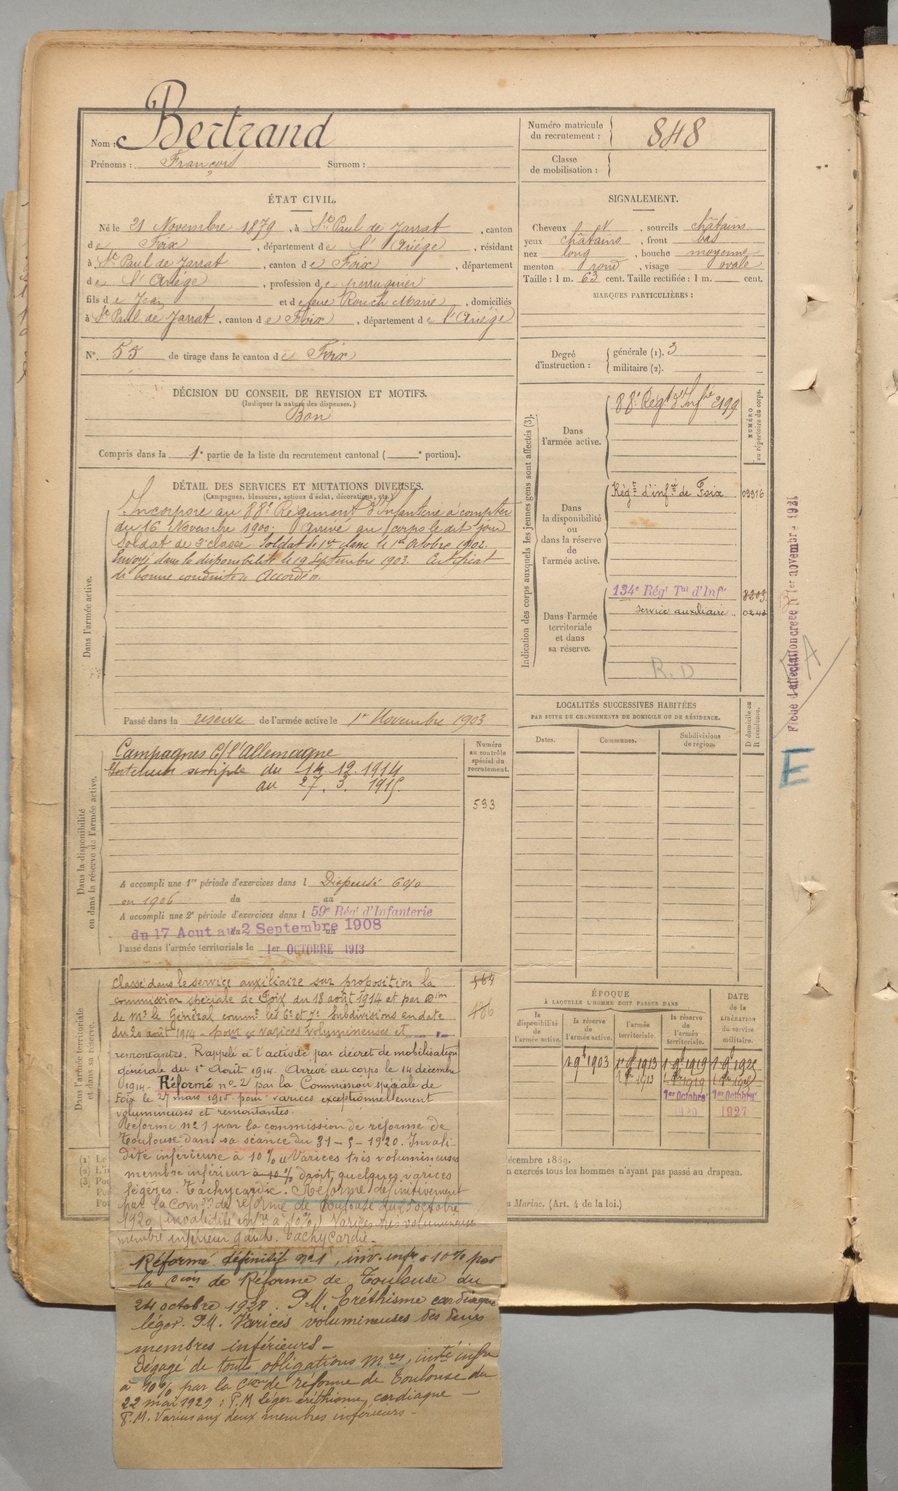 Nom : Bertrand
Prénoms : François Surnom :
Numéro matricule du recrutement : 848
Classe de mobilisation :
ÉTAT CIVIL.
Né le 21 Novembre 1879, à St Paul de Jarrat, canton
de Foix, département de l'Ariège, résidant
à St Paul de Jarrat, canton de Foix, département
de l'Ariège, profession de perruquier
fils de Jean et de feue Rouch Marie, domiciliés
à St Paul de Jarrat, canton de Foix, département de l'Ariège
N° 55 de tirage dans le canton de Foix
SIGNALEMENT.
Cheveux , sourcils châtains
yeux châtains, front bas
nez long, bouche moyenne
menton rond, visage ovale
Taille : 1 m. 63 cent. Taille rectifiée : 1 m. cent.
MARQUES PARTICULIÈRES :
Degré d'instruction : générale (1). 3
militaire (2).
DÉCISION DU CONSEIL DE REVISION ET MOTIFS.
(Indiquer la nature des dispenses.)
Bon
Compris dans la 1e partie de la liste du recrutement cantonal ( e portion).
DÉTAIL DES SERVICES ET MUTATIONS DIVERSES.
(Campagnes, blessures, actions d'éclat, décorations, etc.)
Dans l'armée active.
Incorporé au 88e Régiment d'Infanterie à compter
du 16 Novembre 1900. Arrivé au corps le dit jour
Soldat de 2e classe. Soldat de 1re classe le 1er Octobre 1902.
Envoyé dans la disponibilité le 19 Septembre 1903. Certificat
de bonne conduite Accordé.
Passé dans la réserve de l'armée active le 1er Novembre 1903
Indication des corps auxquels les jeunes gens sont affectés (3).
NUMÉRO au répertoire du corps.
Dans l'armée active.
88e Régt d'Infie 2199
Dans la disponibilité ou dans la réserve de l'armée active.
Régt d'infie de Foix 03976
Dans l'armée territoriale et dans sa réserve.
134e Rég Tal d'Infie
Service auxiliaire
R.D
Fiche d'affectation créée le 1er novembre 1931
A
E
LOCALITÉS SUCCESSIVES HABITÉES
PAR SUITE DE CHANGEMENTS DE DOMICILE OU DE RÉSIDENCE.
Dates. Communes. Subdivisions de région.
D domicile ou R résidence.
Dans la disponibilité ou dans la réserve de l'armée active.
Numéro au contrôle spécial du recrutement.
Campagnes C/ l'Allemagne
Intérieur simple du 14.12.1914
au 27.3.1915
593
A accompli une 1re période d'exercices dans l Dispensé 6%
en 1906 du au
A accompli une 2e période d'exercices dans l 59e Rég d'Infanterie
du 17 Aout au 2 Septembre 1908
Passé dans l'armée territoriale le 1er OCTOBRE 1913
Dans l'armée territoriale et dans sa réserve.
Classé dans le service auxiliaire sur proposition la
commission spéciale de Foix du 18 août 1914 et par Don
de Mr le Général commt les 6e et 7e Subdivisions en date
du 20 août 1914 pour varices volumineuses et
remontantes. Rappelé à l'activité par décret de mobilisation
générale du 1er Août 1914. Arrivé au corps le 14 décembre
1914. Réformé no 2 par la Commission spéciale de
Foix le 27 mars 1915 pour varices exceptionnellement
volumineuses et remontantes.
Réformé no 1 par la commission de réforme de
Toulouse dans sa séance du 31-5-1920. Invali
dité inférieure à 10%. Varices très volumineuses
membre inférieur droit, quelques varices
légères. Tachycardie. Réformé définitivement
par la Comon de réforme de Toulouse du octobre
1920 invalidité infre à 10%. Varices très volumineuses
membre inférieur gauche. Tachycardie.
Réformé définitif no 1, inv. infre à 10% par
la Cion de Réforme de Toulouse du
24 octobre 1928. P.M. Eréthisme cardiaque
léger. P.M. Varices volumineuses des deux
membres inférieurs.
Dégagé de toutes obligations Mres, invté infre
à 10% par la Con de réforme de Toulouse du
22 mai 1929 : P.M. léger éréthisme cardiaque
P.M. Varices aux deux membres inférieurs.
ÉPOQUE
À LAQUELLE L'HOMME DOIT PASSER DANS
DATE de la LIBÉRATION du service militaire.
la disponibilité de l'armée active.
la réserve de l'armée active.
l'armée territoriale.
la réserve de l'armée territoriale.
décembre 1889.
on exercés tous les hommes n'ayant pas passé au drapeau.
(Art. 4 de la loi.)